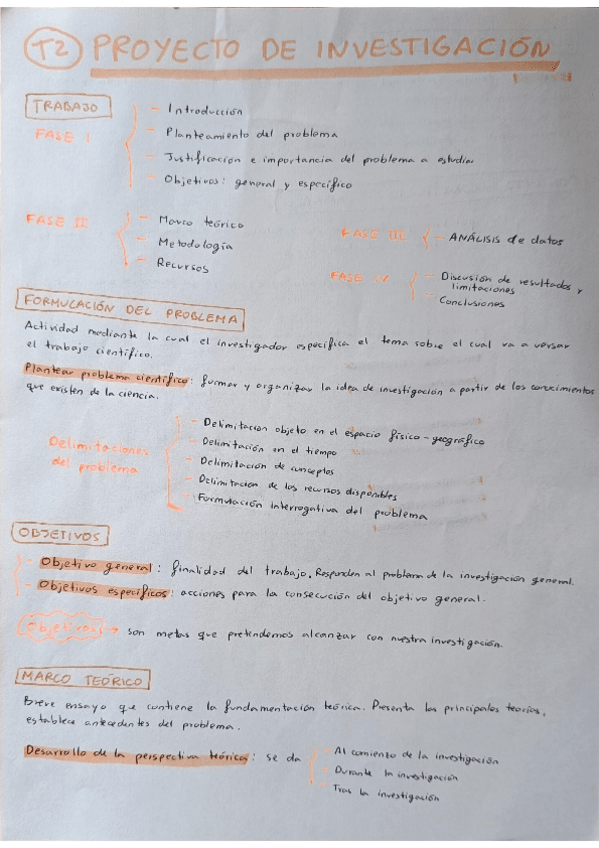 T2 PROYECTO DE INVESTIGACIÓN
TRABAJO
FASE I
- Introducción
- Planteamiento del problema
- Justificación e importancia del problema a estudiar
- Objetivos: general y específico
FASE II
- Marco teórico
- Metodología
- Recursos
FASE III
- ANÁLISIS de datos
FASE IV
- Discusión de resultados y
limitaciones
- Conclusiones
FORMULACIÓN DEL PROBLEMA
Actividad mediante la cual el investigador especifica el tema sobre el cual va a versar
el trabajo científico.
Plantear problema científico: formar y organizar la idea de investigación a partir de los conocimientos
que existen de la ciencia.
Delimitaciones
del problema
- Delimitación objeto en el espacio físico-geográfico
- Delimitación en el tiempo
- Delimitación de conceptos
- Delimitación de los recursos disponibles
- Formutación interrogativa del problema
OBJETIVOS
- Objetivo general: finalidad del trabajo. Responden al problema de la investigación general.
- Objetivos específicos: acciones para la consecución del objetivo general.
Objetivos → son metas que pretendemos alcanzar con nuestra investigación.
MARCO TEÓRICO
Breve ensayo que contiene la fundamentación teórica. Presenta las principales teorías,
establece antecedentes del problema.
Desarrollo de la perspectiva teórica: se da
- Al comienzo de la investigación
- Durante la investigación
- Tras la investigación